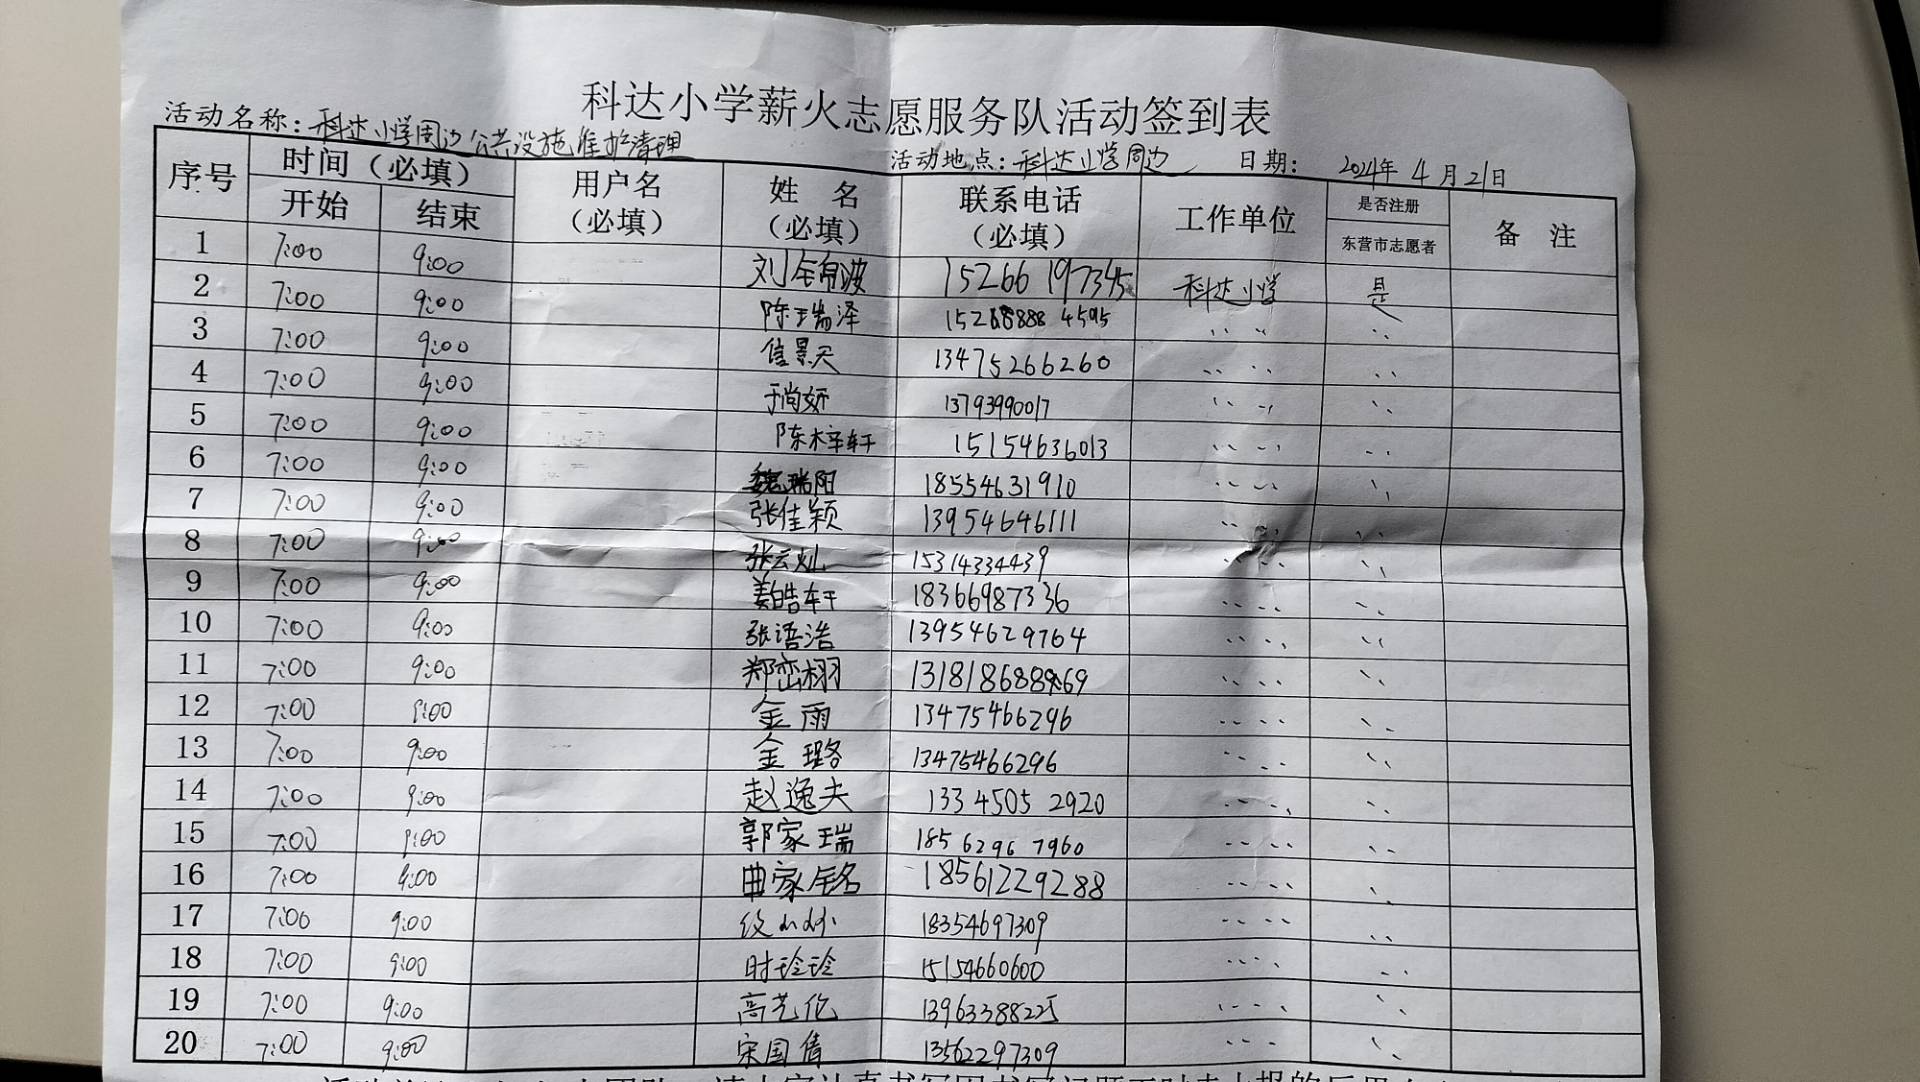 科达小学薪火志愿服务队活动签到表
活动名称：科达小学周边公共设施维护清理 活动地点：科达小学周边 日期： 2024年 4 月 21日
序号 时间（必填） 用户名（必填） 姓 名（必填） 联系电话（必填） 工作单位 是否注册 备 注
开始 结束 东营市志愿者
1 7:00 9:00 刘 15266197345 科达小学 是
2 7:00 9:00 陈瑞泽 4595 〃 〃
3 7:00 9:00 信景天 13475266260 〃 〃
4 7:00 9:00 于尚妍 13793990017 〃 〃
5 7:00 9:00 陈梓轩 15154636013 〃 〃
6 7:00 9:00 魏瑞阳 18554631910 〃 〃
7 7:00 9:00 张佳颖 13954646111 〃 〃
8 7:00 9:00 张云灿 15314334439 〃 〃
9 7:00 9:00 姜皓轩 18366987336 〃 〃
10 7:00 9:00 张语浩 13954629764 〃 〃
11 7:00 9:00 郑峦栩 〃 〃
12 7:00 9:00 金雨 13475466296 〃 〃
13 7:00 9:00 金璐 13475466296 〃 〃
14 7:00 9:00 赵逸夫 133 4505 2920 〃 〃
15 7:00 9:00 郭家瑞 185 6296 7960 〃 〃
16 7:00 9:00 曲家铭 18561229288 〃 〃
17 7:00 9:00 18354697309 〃 〃
18 7:00 9:00 时玲玲 15154660600 〃 〃
19 7:00 9:00 高艺伦 13963388225 〃 〃
20 7:00 9:00 宋国倩 13562297309 〃 〃